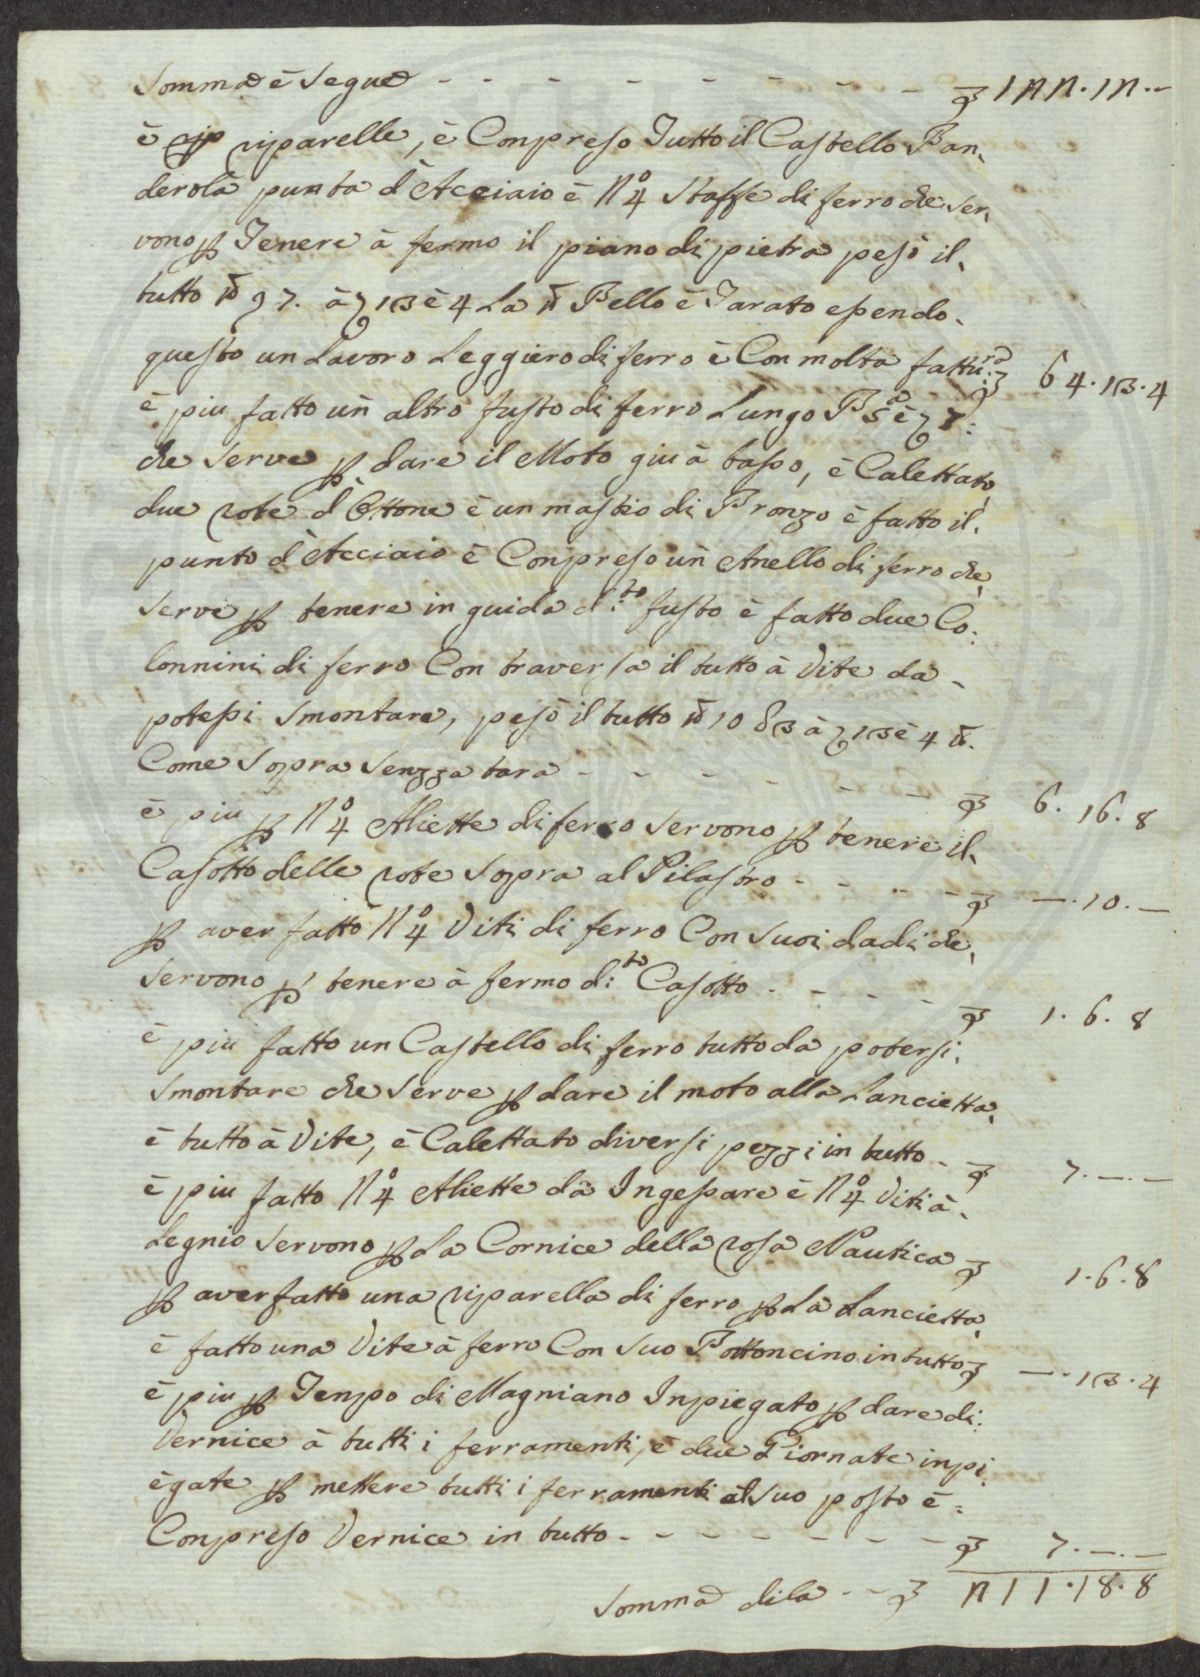 Somma è Segue - - - - - - - £ 122.12.--
è riparelle, è Conpreso Tutto il Castello Ban,
derola punta d'Acciaio è N° 4 Staffe di ferro che ser,
vono p Tenere à fermo il piano di pietra pesò il,
tutto ℔ 97. à ʒ 13 è 4 La ℔ Bello è Tarato essendo,
questo un Lavoro Leggiero di ferro è Con molta fattu:ra £ 64.13.4
è piu fatto uñ altro fusto di ferro Lungo Ba 5 è ʒ 7:
che serve p dare il Moto giu à basso, è Calettato,
due rote d'Ottone è un mastio di Bronzo è fatto il,
punto d'Acciaio è Conpreso uñ Anello di ferro che,
serve p tenere in guida d:to fusto è fatto due Co:
lonnini di ferro Con traversa il tutto à Vite da -
potessi smontare, pesò il tutto ℔ 10 ℥ 3 à ʒ 13 è 4 ℔.
Come sopra senzza tara - - - - - - - £ 6.16.8
è piu p N° 4 Aliette di ferro servono p tenere il,
Casotto delle rote sopra al Pilastro - - - - - £ —.10.—
p aver fatto N° 4 Viti di ferro Con suoi dadi che,
servono p tenere à fermo d:to Casotto - - - - - £ 1.6.8
è piu fatto un Castello di ferro tutto da potersi,
smontare che serve p dare il moto alla Lancietta,
è tutto à Vite, è Calettato diversi pezzi in tutto - £ 7.—.—
è piu fatto N° 4 Aliette da Ingessare è N° 4 Viti à,
Legnio servono p La Cornice della rosa Nautica £ 1.6.8
p aver fatto una riparella di ferro p La Lancietta,
è fatto una Vite à ferro Con suo Bottoncino in tutto £ —.13.4
è piu p Tenpo di Magniano Inpiegato p dare di:
Vernice à tutti i ferramenti, è due Giornate inpi,
egate p mettere tutti i ferramenti al suo posto è =
Conpreso Vernice in tutto - - - - - - - £ 7.—.—
Somma di la - - £ 211.18.8